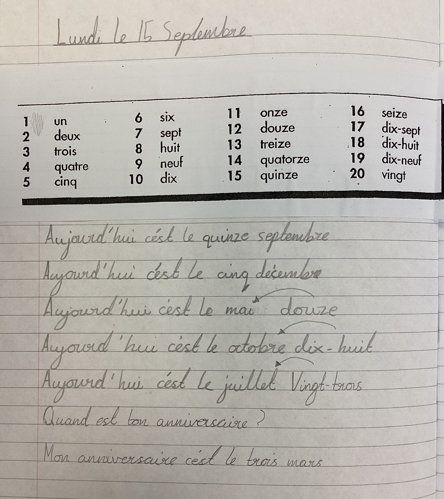 Lundi le 15 Septembre
1 un 6 six 11 onze 16 seize
2 deux 7 sept 12 douze 17 dix-sept
3 trois 8 huit 13 treize 18 dix-huit
4 quatre 9 neuf 14 quatorze 19 dix-neuf
5 cinq 10 dix 15 quinze 20 vingt
Aujourd'hui cést le quinze septembre
Aujourd'hui cést le cinq décembre
Aujourd'hui cést le mai douze
Aujourd'hui cést le octobre dix-huit
Aujourd'hui cést le juillet Vingt-trois
Quand est ton anniversaire ?
Mon anniversaire cést le trois mars